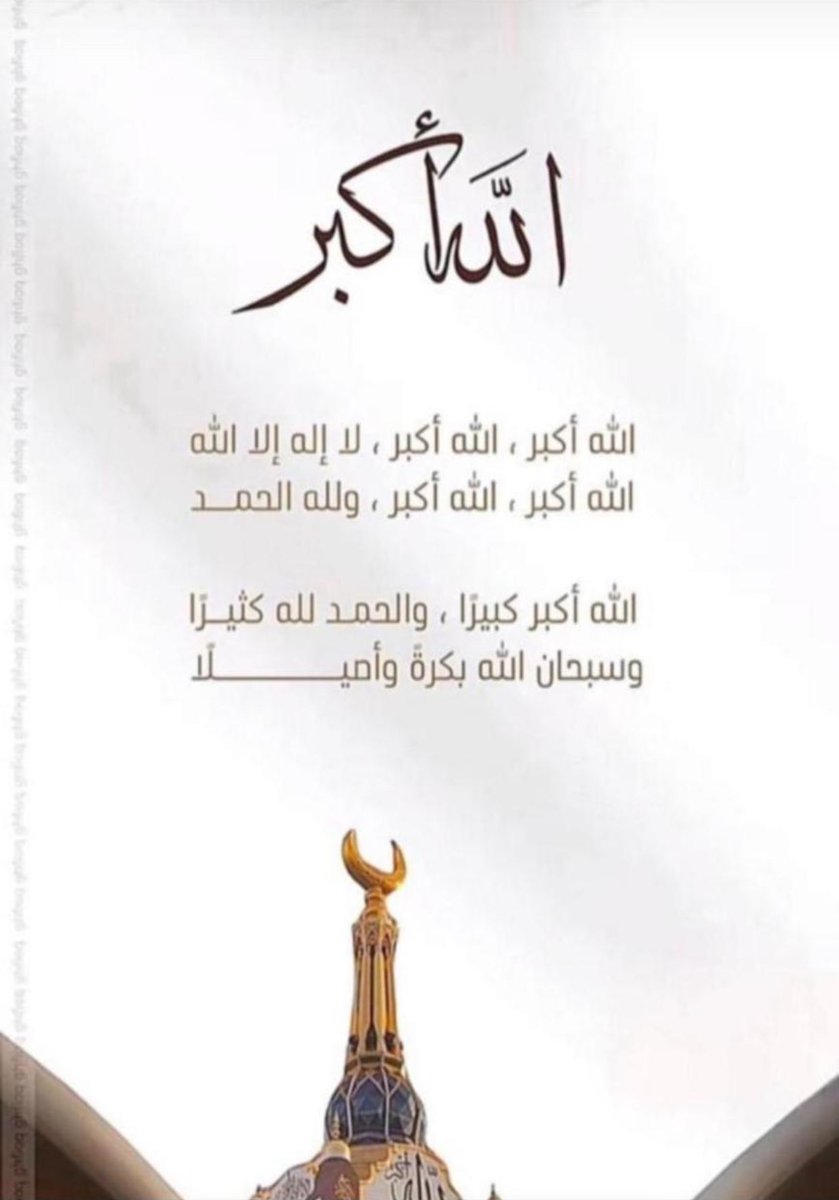 الله أكبر
الله أكبر ، الله أكبر ، لا إله إلا الله
الله أكبر ، الله أكبر ، ولله الحمــد
الله أكبر كبيرًا ، والحمـد لله كثيــرًا
وسبحان الله بكرةً وأصيــــــــــلًا